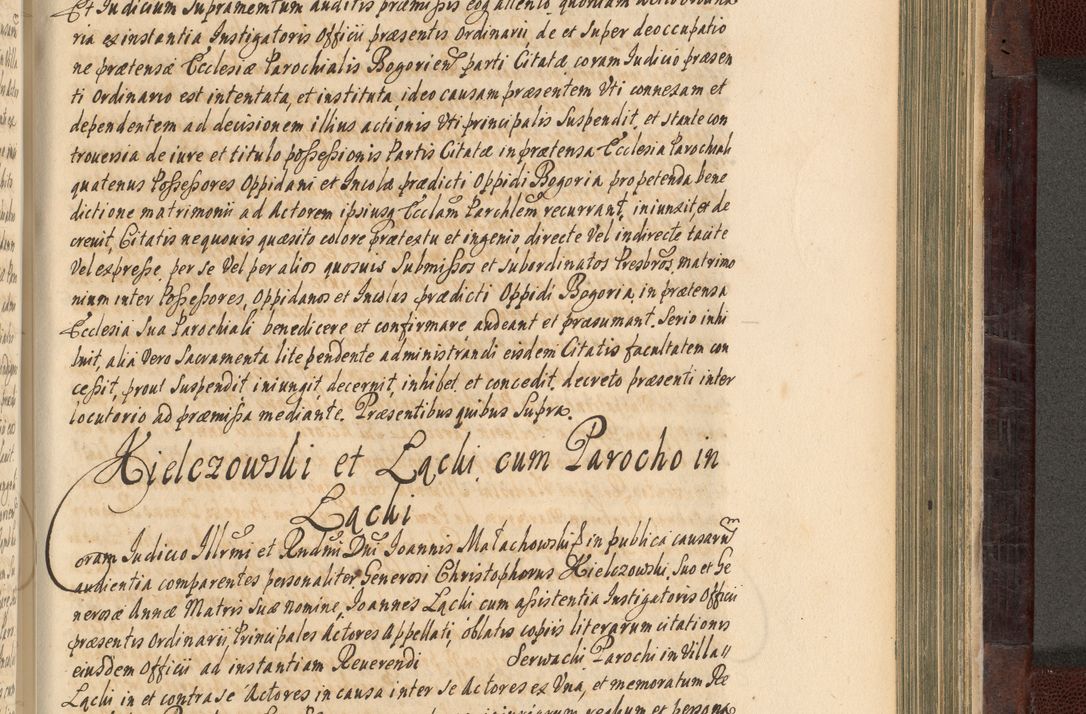 Et Iudicium Supramentum auditis præmissis eoq́ attento, quoniam actio
ria ex instantia Instigatoris Officii præsentis Ordinarii de et super deoccupatio
ne prætensæ Ecclesiæ Parochialis Bogorien̄ parti Citatæ coram Iudicio præsen
ti Ordinario est intentata, et instituta, ideo causam præsentem Vti connexam et
dependentem ad decisionem illius actionis Vti principalis Suspendit, et stante con
trouersia de iure et titulo possessionis Partis Citatæ in prætensa Ecclesia Parochiali
quatenus Possessores Oppidani et Incolæ prædicti Oppidi Bogoria pro petenda bene
dictione matrimonii ad Actorem ipsiusq́ Eccłam Parchlem recurrant, iniunxit et de
creuit, Citatis ne quouis quæsito colore Prætextu et ingenio, directe Vel indirecte tacite
Vel expresse per se Vel per alios quosuis Submissos et subordinatos Presbros, matrimo
nium inter Possessores, Oppidanos et Incolas prædicti Oppidi Bogoria in prætensa
Ecclesia Sua Parochiali benedicere et confirmare audeant et præsumant. Serio inhi
buit, alia Vero Sacramenta lite pendente administrandi eisdem Citatis facultatem con
cessit, prout Suspendit, iniungit, decernit, inhibet, et concedit, decreto præsenti inter
locutorio ad præmissa mediante. Præsentibus quibus Supra.
Kielczowski et Łąchi cum Parocho in
Łąchi
Coram Iudicio Illrmi et Rndmi Dni Ioannis Małachowski in publica causarum
audientia comparentes personaliter Generosi Christophorus Kielczowski, Suo et Ge
nerosæ Annæ Matris Suæ nomine, Ioannes Łąchi cum assistentia Instigatoris Officii
præsentis Ordinarii, Principales Actores Appellati, oblatis copiis literarum citationis
eiusdem Officii ad instantiam Reuerendi Serwachi Parochi in Villa
Łąchi in et contra se Actores in causa inter se Actores ex Vna, et memoratum Re